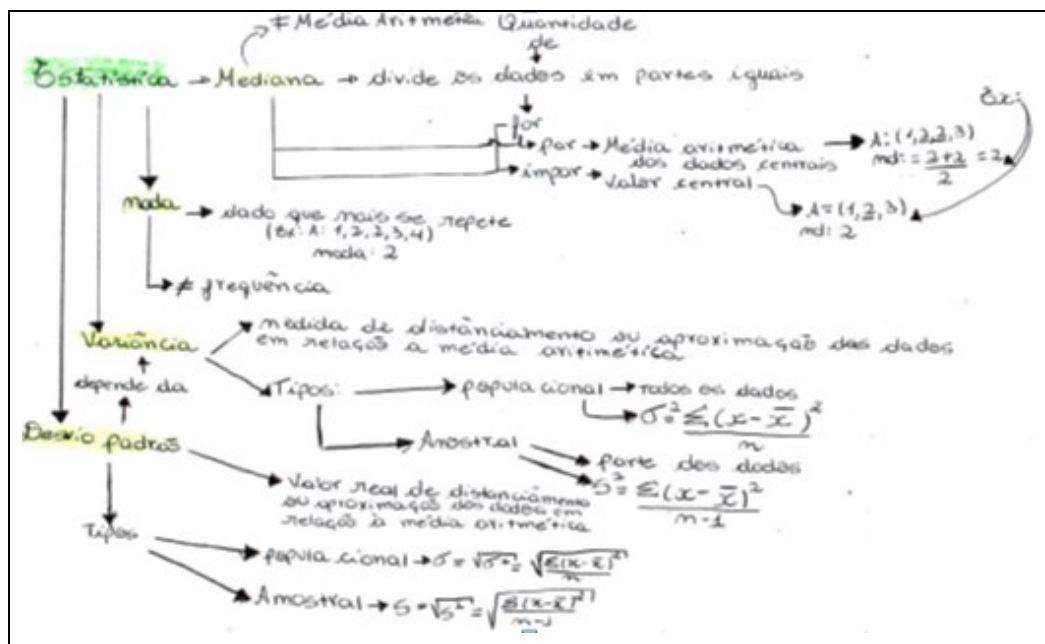 ≠ Média Aritmética Quantidade
de
Estatística → Mediana → divide os dados em partes iguais
Ex:
for
par → Média aritmética
dos dados centrais
A: (1,2,2,3)
md: = 2+2 = 2
2
impar → Valor central
A = (1,2,3)
md: 2
moda → dado que mais se repete
(Ex: A: 1,2,2,3,4)
moda: 2
≠ frequência
Variância
medida de distânciamento ou aproximação dos dados
em relação a média aritimética
depende da
Tipos:
popula cional → todos os dados
σ² = Σ(x - x̄)²
n
Amostral
parte dos dados
S² = Σ(x - x̄)²
n-1
Desvio padrão
Valor real de distanciamento
ou aproximação dos dados em
relação à média aritmética
Tipos
popula cional → σ = √σ² = √Σ(x-x̄)²
n
Amostral → S = √S² = √Σ(x-x̄)²
n-1